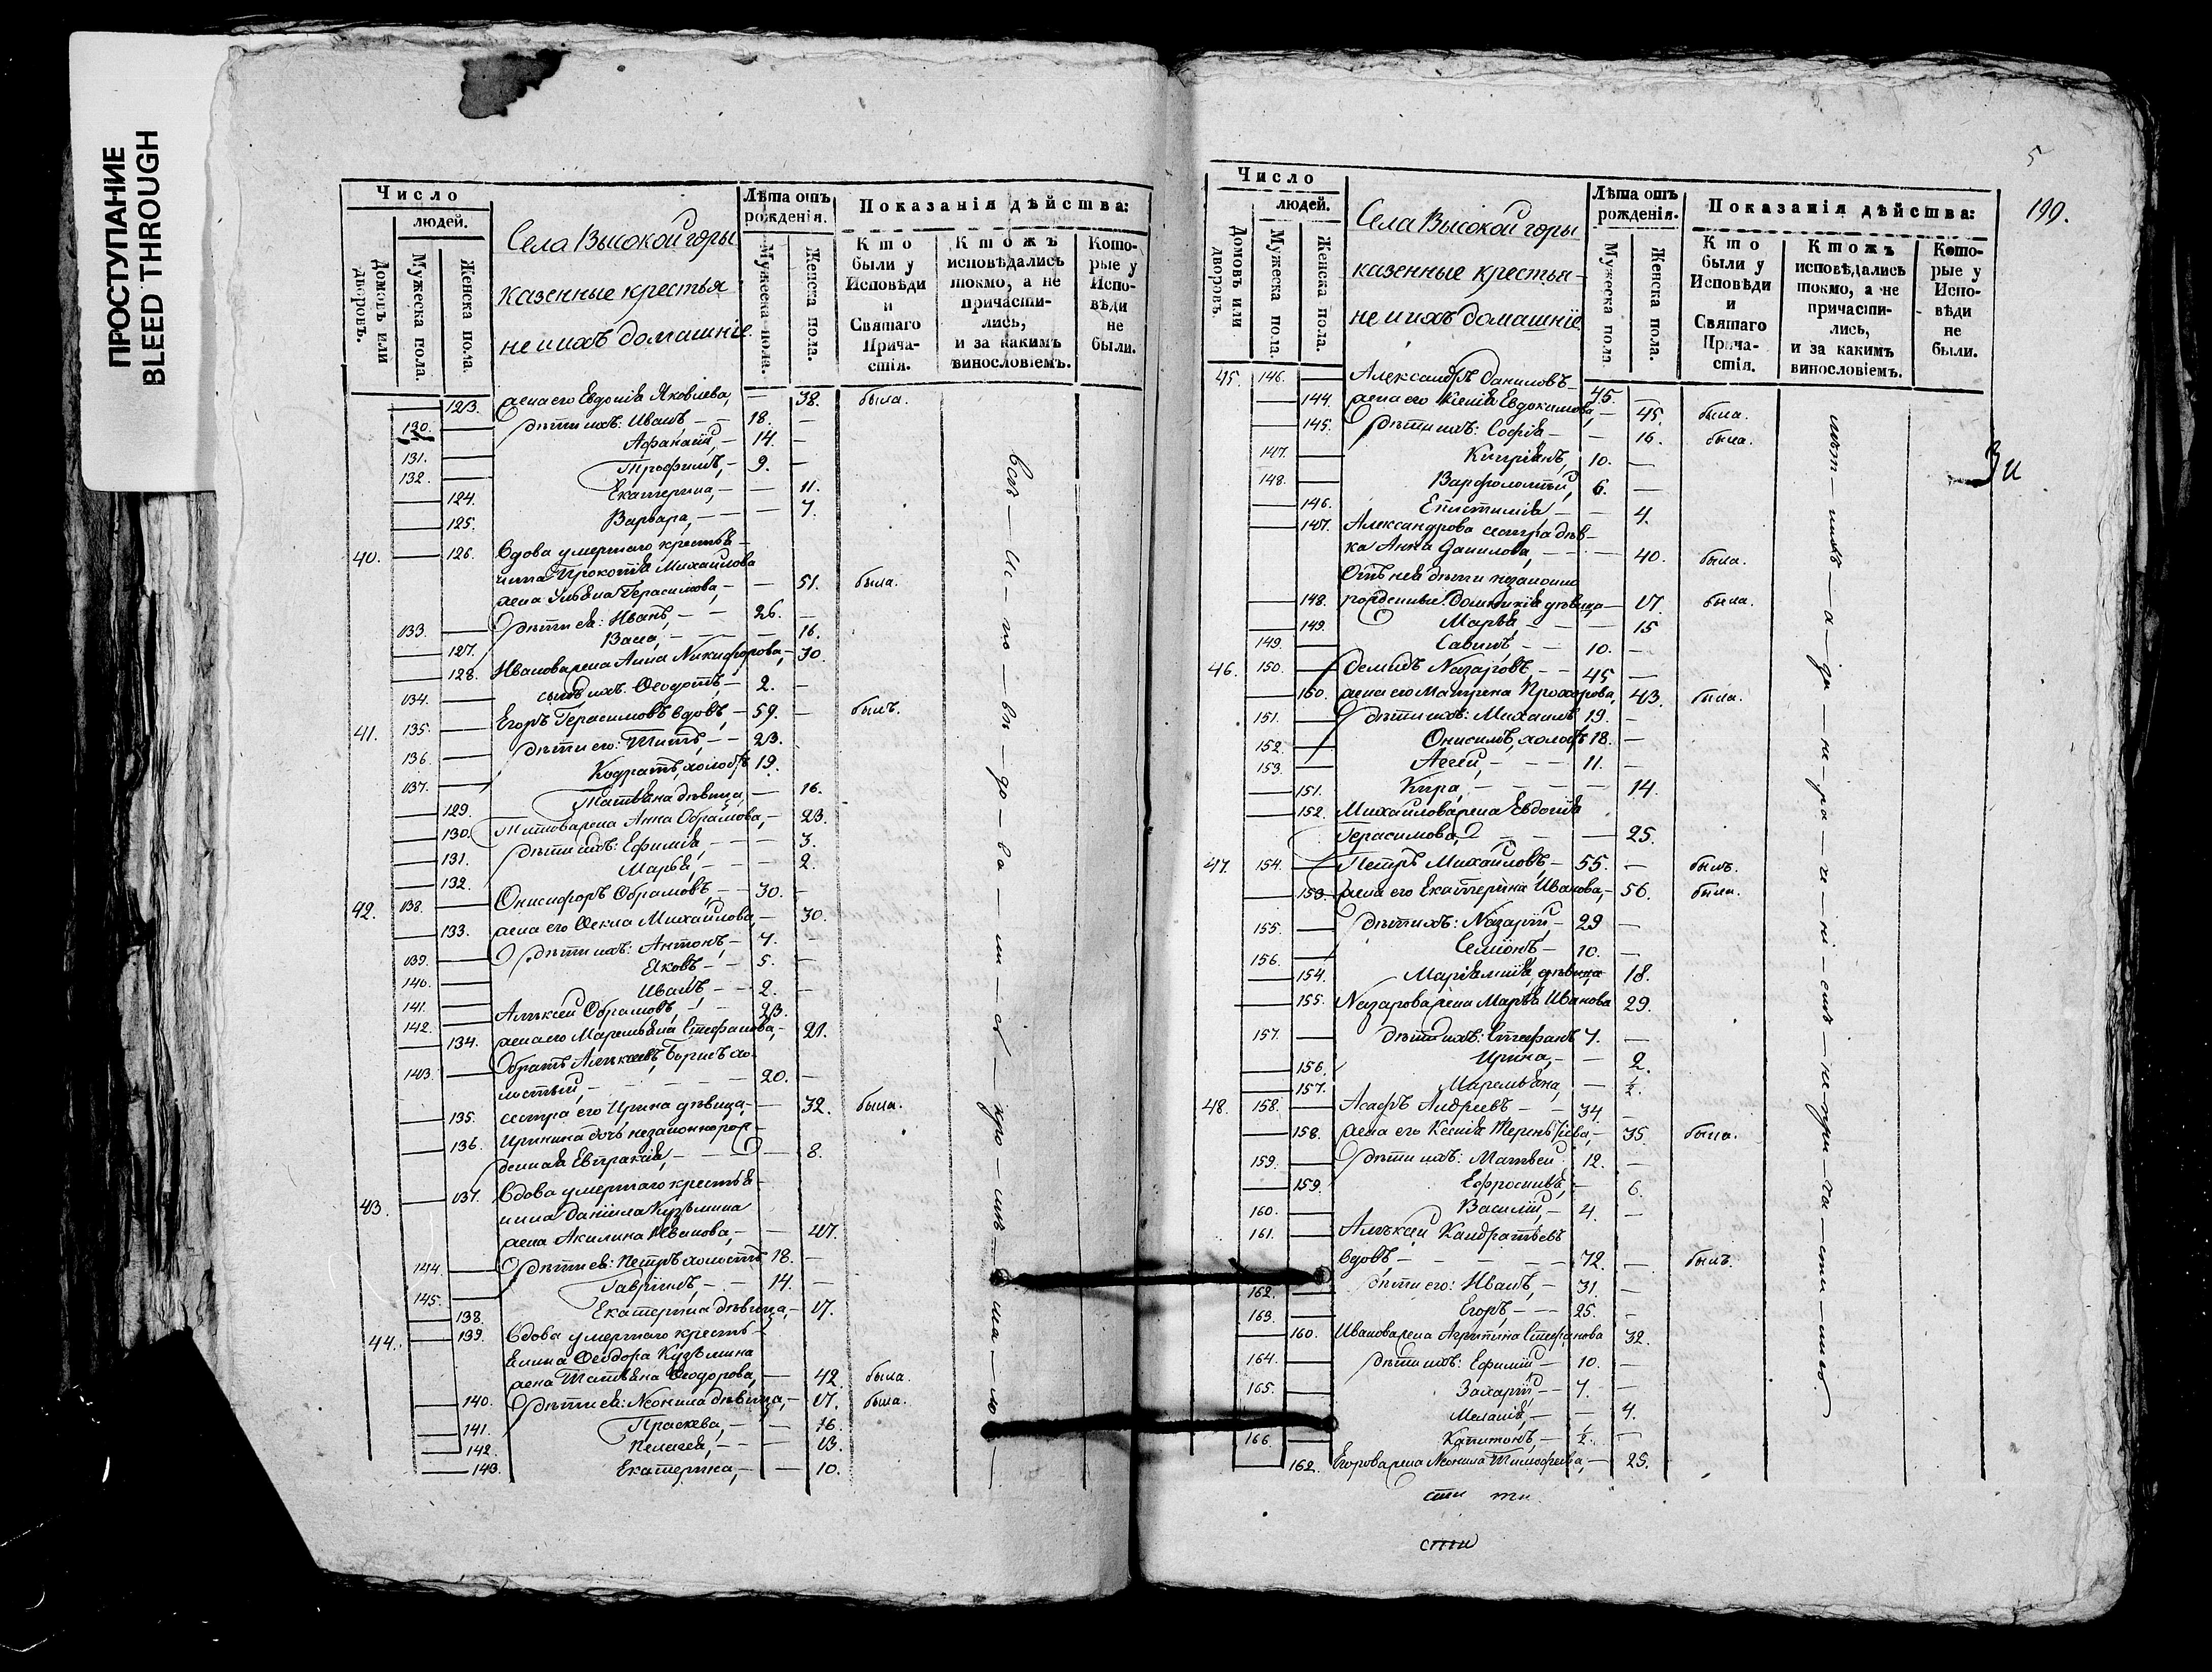 ПРОСТУПАНИЕ
BLEED THROUGH
Число
людей.
Домовъ или дворовъ.
Мужеска пола.
Женска пола.
Села Высокой горы
казенные крестья
не и ихъ домашніе
Лѣта отъ рожденія.
Мужеска пола.
Женска пола.
Показанія дѣйства:
Кто были у Исповѣди и Святаго Причастія.
Ктожъ исповѣдались токмо, а не причастились, и за какимъ винословіемъ.
Которые у Исповѣди не были.
123. жена его Евдокія Яковлева, — 38. была.
130. дѣти ихъ: Иванъ — 18. —
131. Афанасій, — 14. —
132. Трофимъ, — 9. —
124. Екатерина, — 11.
125. Варвара, — 7.
40. 126. Вдова умершаго крестья-
нина Прокопія Михайлова
жена Ульяна Герасимова, — 51. была.
133. дѣти ея: Иванъ, — 26. —
127. — 16.
128. Иванова жена Анна Никифорова, — 30.
134. сынъ ихъ Ѳеодотъ, — 2. —
41. 135. Егоръ Герасимовъ вдовъ, — 59. — былъ.
136. дѣти его: Титъ, — 23.
137. Кодратъ, холостъ 19.
129. Татьяна дѣвица, — 16.
130. Титова жена Анна Обрамова, — 23.
131. дѣти ихъ: Ефимія, — 3.
132. Марья, — 2.
42. 138. Онисифоръ Обрамовъ, — 30. —
133. жена его Ѳекла Михайлова, — 30.
139. дѣти ихъ: Антонъ, — 7. —
140. Яковъ — 5. —
141. Иванъ — 2. —
142. Алѣксѣй Обрамовъ, — 23.
134. жена его Маремьяна Стефанова, — 21.
143. братъ Алѣксѣевъ, Борисъ хо-
лостый, — 20. —
135. сестра его Ирина дѣвица, — 32. была.
136. Иринина дочь незаконнорож-
денная Евпраксія, — 8.
43. 137. Вдова умершаго крестья-
нина Даніила Кузьмина
жена Акилина Иванова, — 47.
144. дѣти ея: Петръ холостъ 18. —
145. Гавріилъ, — 14. —
138. Екатерина дѣвица, — 17.
44. 139. Вдова умершаго кресть-
янина Ѳеодора Кузьмина
жена Татьяна Ѳеодорова, — 42. была.
140. дѣти ея: Неонила дѣвица, — 17. была.
141. Праскева, — 16.
142. Пелагея, — 13.
143. Екатерина, — 10.
5
199.
Зи
Число
людей.
Домовъ или дворовъ.
Мужеска пола.
Женска пола.
Села Высокой горы
казенные крестья-
не и ихъ домашніе
Лѣта отъ рожденія.
Мужеска пола
Женска пола.
Показанія дѣйства:
Кто были у Исповѣди и Святаго Причастія.
Ктожъ исповѣдались токмо, а не причастились, и за какимъ винословіемъ.
Которые у Исповѣди не были.
45. 146. Александръ Даниловъ — 45. —
144. жена его Ксенія Евдокимова, — 45. была.
145. дѣти ихъ: Софія — 16. была.
147. Кипріянъ, 10. —
148. Варфоломей, 6. —
146. Епистимія — 4.
147. Александрова сестра дѣв-
ка Анна Данилова, — 40. была.
Отъ нея дѣти незаконно
148. рожденные: Домникія дѣвица — 17. была.
149. Марья — 15
149. Савинъ, — 10. —
46. 150. Демидъ Назаровъ — 45 —
150. жена его Матрена Прохорова, 43. была.
151. дѣти ихъ: Михаилъ, 19. —
152. Онисимъ, холостъ 18. —
153. Агей, — 11. —
151. Кира, — 14.
152. Михайлова жена Евдокія
Герасимова, — 25.
47. 154. Петръ Михайловъ, — 55. — былъ.
153. жена его Екатерина Иванова, — 56. была.
155. дѣти ихъ: Назарій, — 29 —
156. Семіонъ — 10. —
154. Маріямія, дѣвица 18.
155. Назарова жена Марья Иванова 29.
157. дѣти ихъ: Стефанъ 7. —
156. Ирина, — 2.
157. Маремьяна, — ½.
48. 158. Асафъ Андреевъ — 34. —
158. жена его Ксенія Терентьева, — 35. была.
159. дѣти ихъ: Матвей 12. —
159. Ефросинья, — 6.
160. Василій, — 4. —
161. Алѣксѣй Кандратьевъ
вдовъ, — 72. — былъ.
162. дѣти его: Иванъ, — 31. —
163. Егоръ, — 25. —
160. Иванова жена Агрипина Стефанова 32.
164. дѣти ихъ: Ефимій — 10. —
165. Захарій — 7. —
Меланія, — 4.
166. Капитонъ, — ½. —
162. Егорова жена Неонила Тимофеева, — 25.